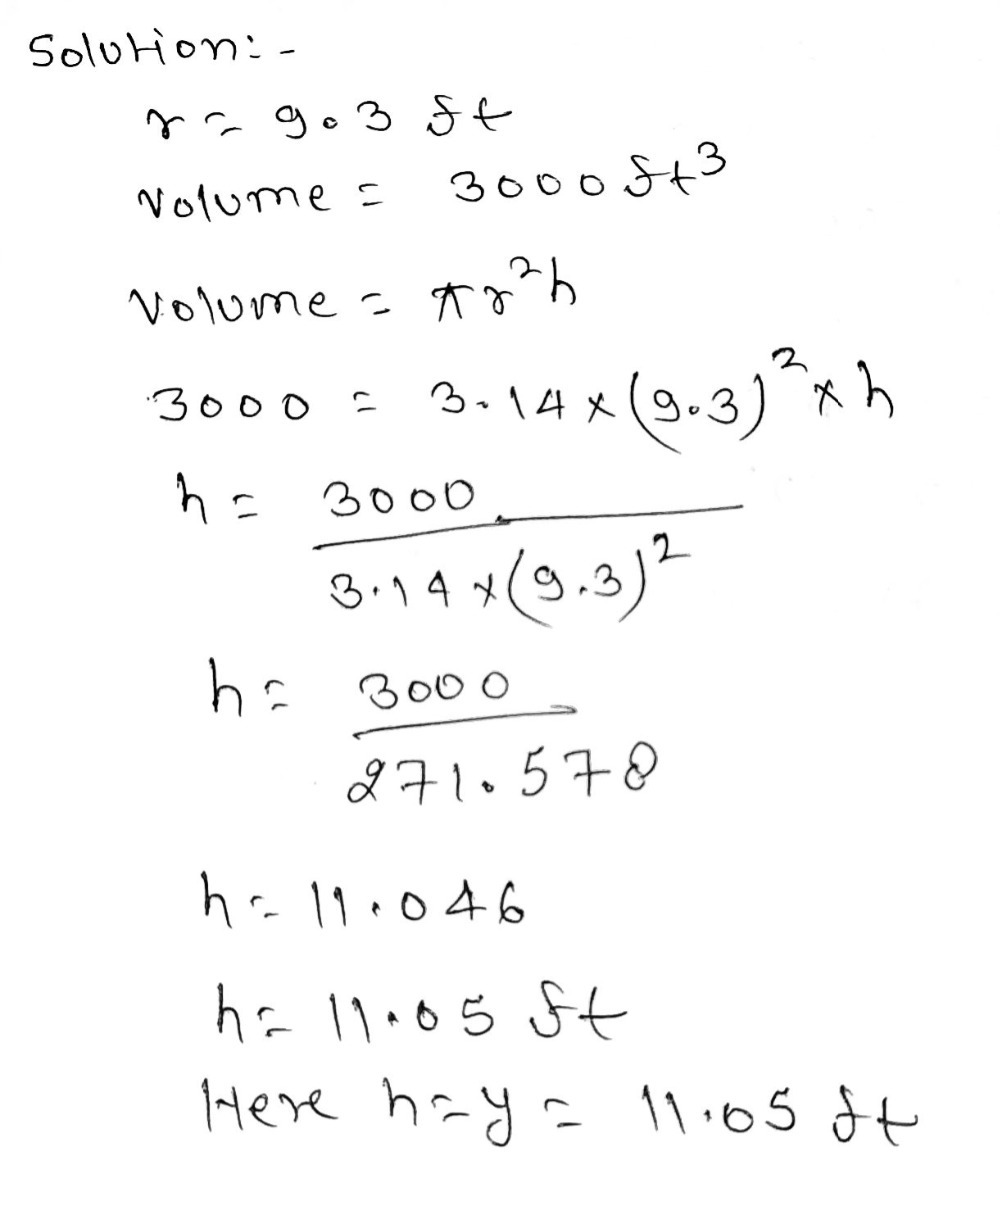 Solution:-
r = 9.3 ft
Volume = 3000 ft³
Volume = πr²h
3000 = 3.14 × (9.3)² × h
h = 3000
3.14 × (9.3)²
h = 3000
271.578
h = 11.046
h = 11.05 ft
Here h = y = 11.05 ft